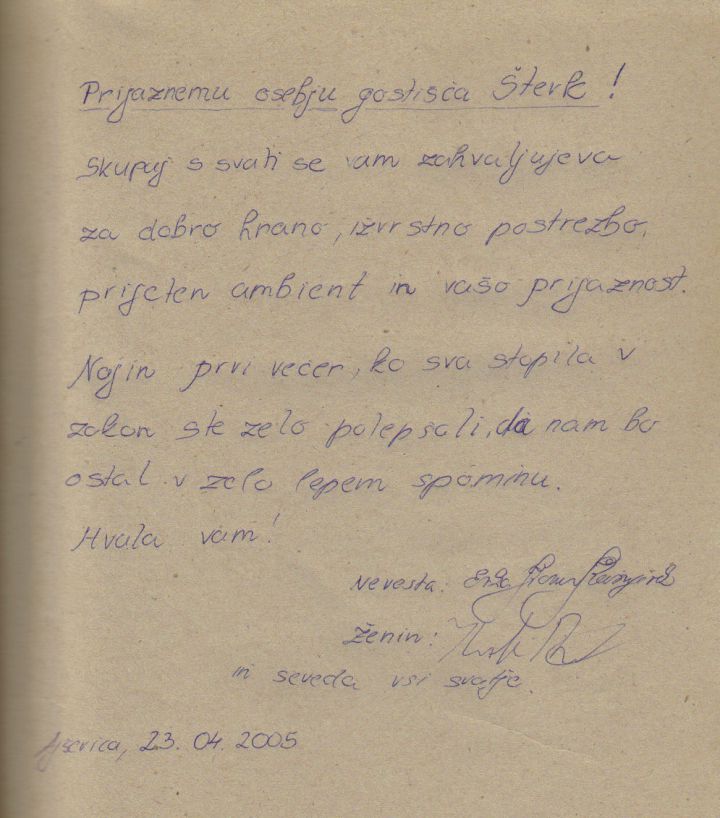 Prijaznemu osebju gostišča Šterk!
Skupaj s svati se vam zahvaljujeva
za dobro hrano, izvrstno postrežbo,
prijeten ambient in vašo prijaznost.
Najin prvi večer, ko sva stopila v
zakon ste zelo polepšali, da nam bo
ostal v zelo lepem spominu.
Hvala vam!
Nevesta:
Ženin:
in seveda vsi svatje.
23. 04. 2005